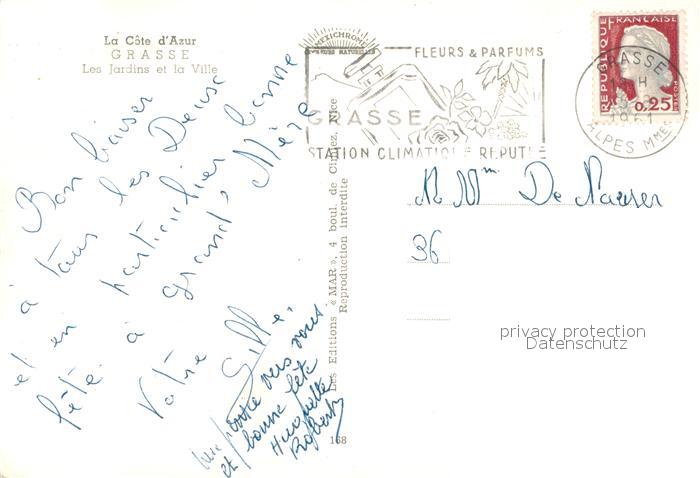 La Côte d'Azur
GRASSE
Les Jardins et la Ville
Bon baiser
à tous les Deux
et en particulier bonne
fête à grand, Mère
Votre Gille,
une pensée vers vous
et bonne fête
Huguette
Robert
MEXICHROME
COULEURS NATURELLES
Les Editions « MAR », 4 boul. de Cimiez, Nice
Reproduction interdite
168
FLEURS & PARFUMS
GRASSE
STATION CLIMATIQUE REPUTÉE
REPUBLIQUE FRANÇAISE
POSTES
0,25
GRASSE
H
1961
ALPES MMES
M Mme De
36
privacy protection
Datenschutz